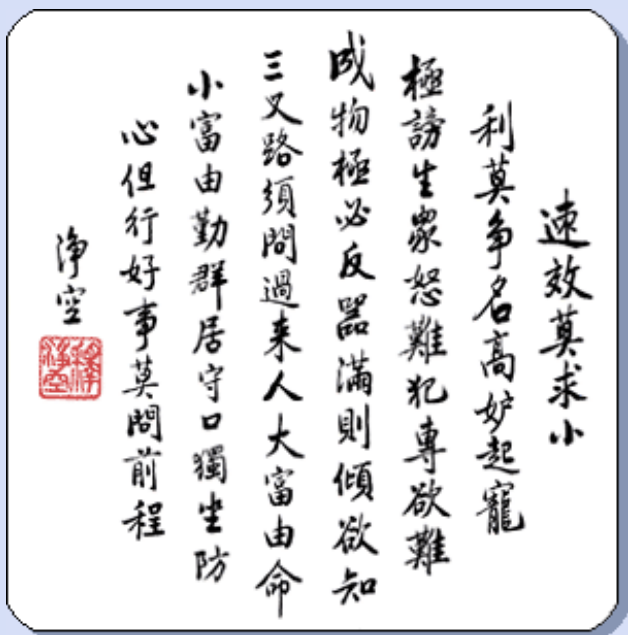 速效莫求小
利莫争名高妒起寵
極謗生眾怒難犯專欲難
成物極必反器滿則傾欲知
三叉路須問過来人大富由命
小富由勤群居守口獨坐防
心但行好事莫問前程
淨空